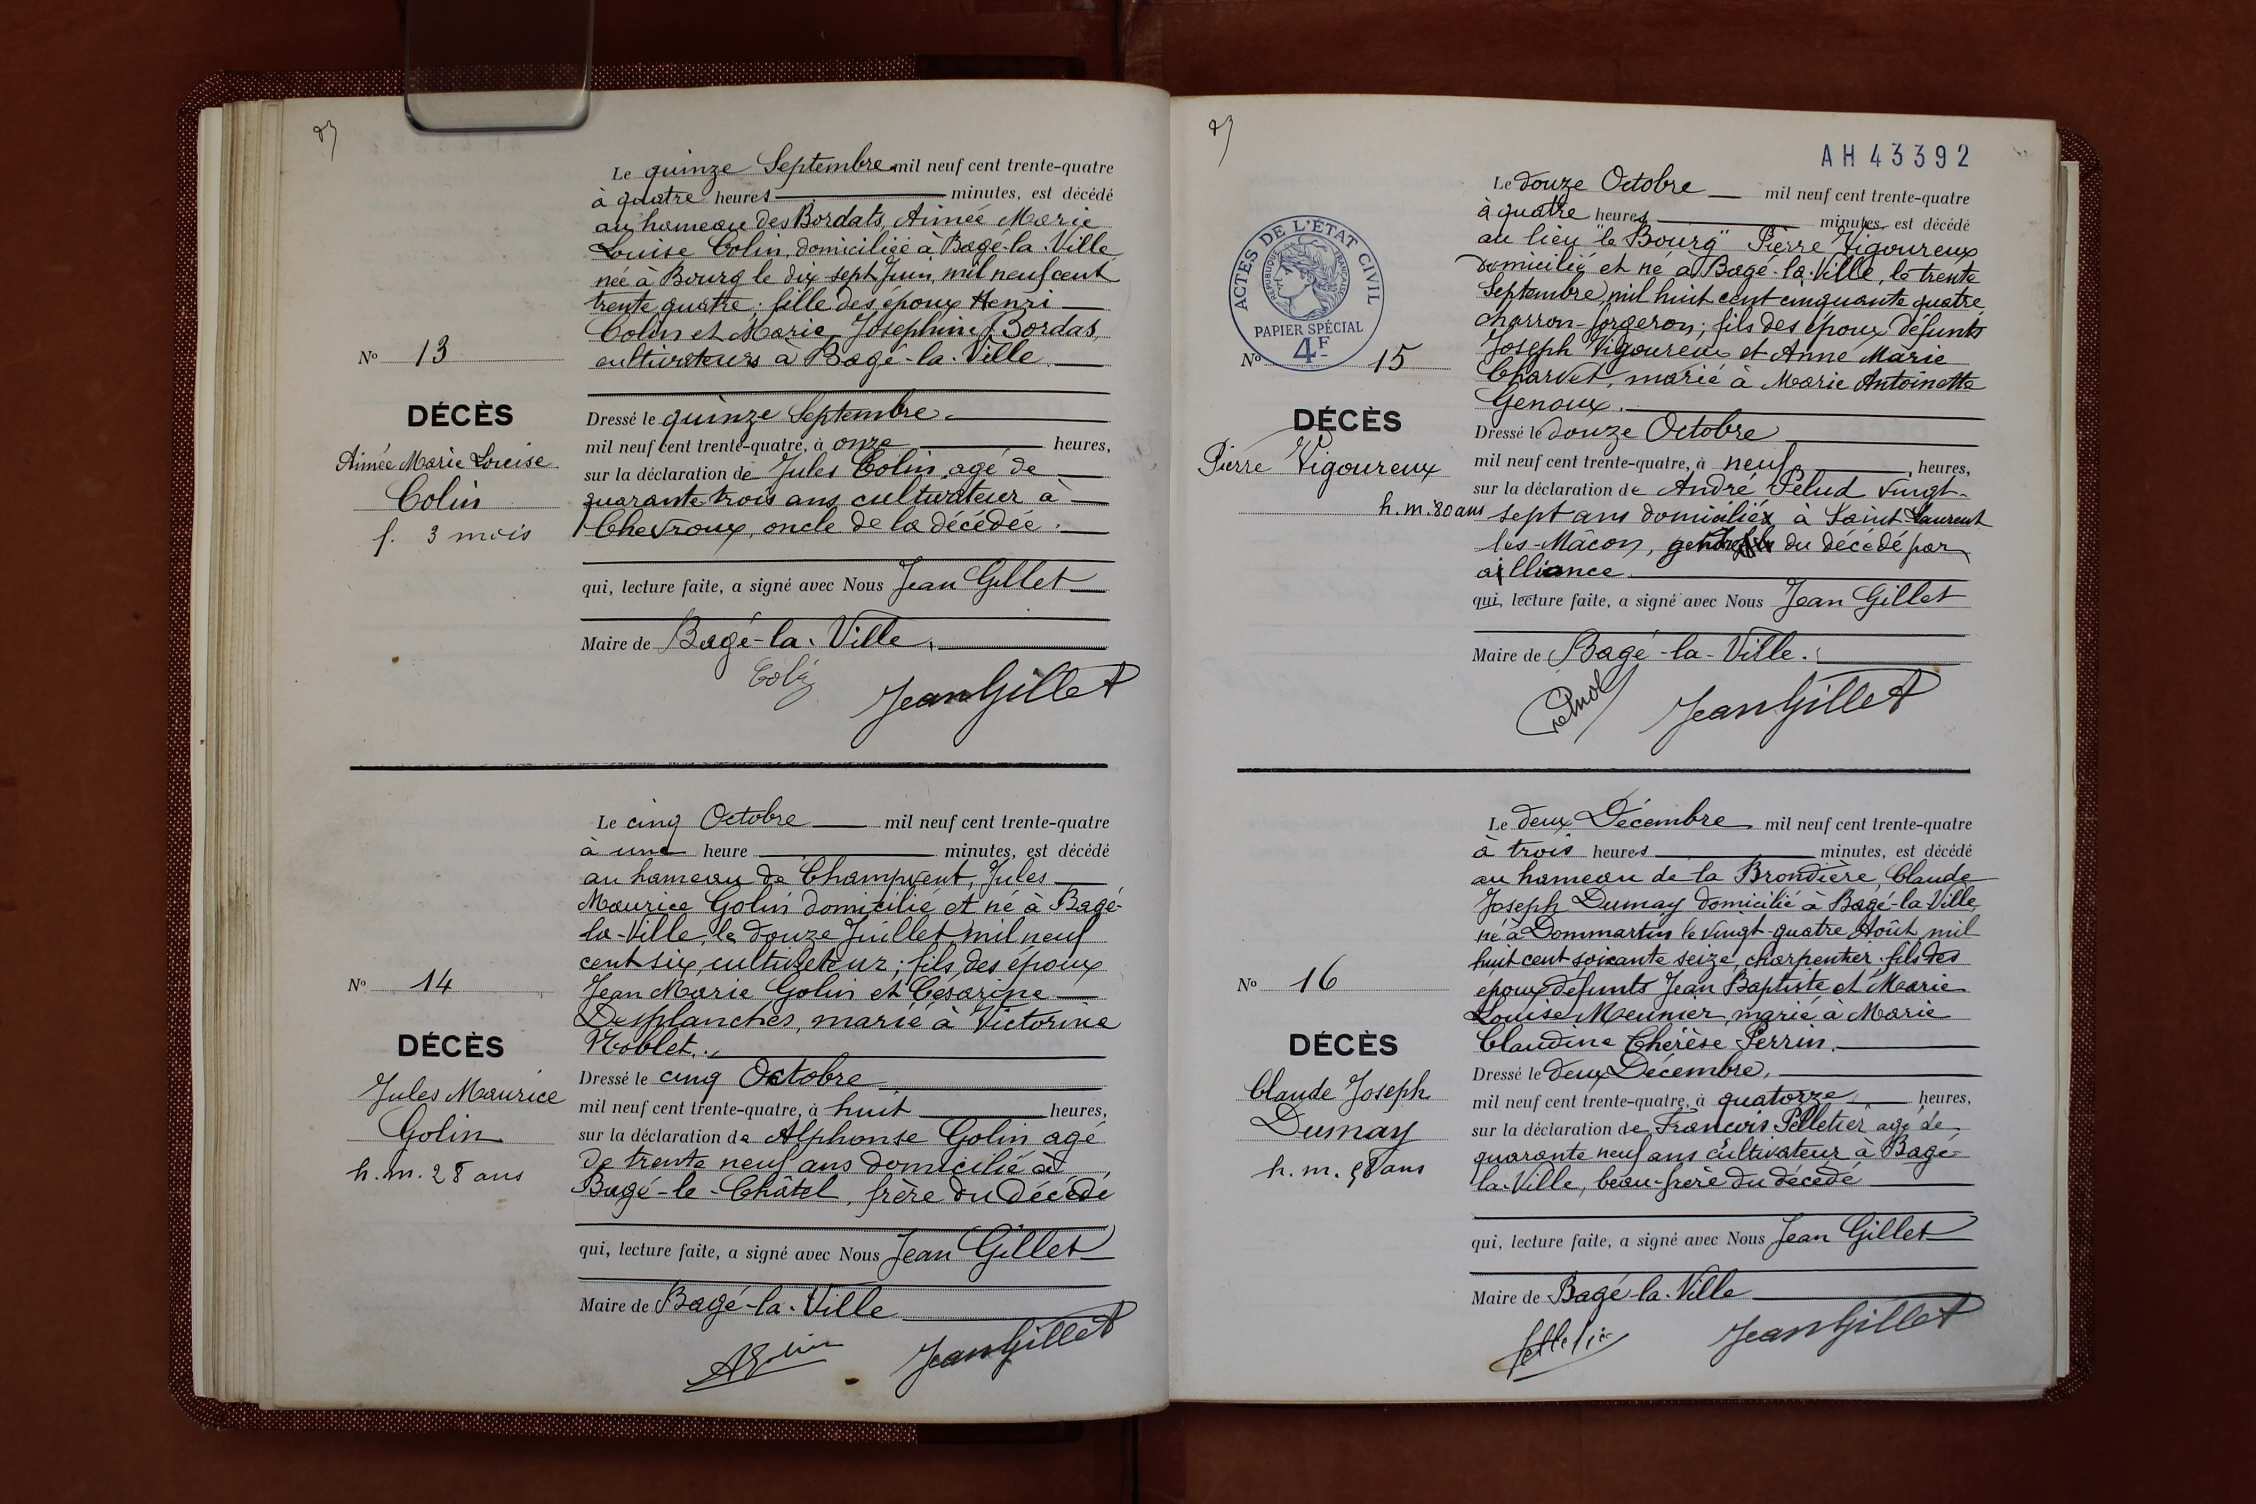 Le quinze Septembre mil neuf cent trente-quatre
à quatre heures minutes, est décédé
au hameau des Bordats, Aimée Marie
Louise Colin, domiciliée à Bagé-la-Ville
née à Bourg le dix sept Juin, mil neuf cent
trente quatre. fille des époux Henri
Colin et Marie Joséphine Bordat,
cultivateurs à Bagé-la-Ville.
No 13
DÉCÈS
Aimée Marie Louise
Colin
f. 3 mois
Dressé le quinze Septembre
mil neuf cent trente-quatre, à onze heures,
sur la déclaration de Jules Colin, agé de
quarante trois ans cultivateur à
Chevroux, oncle de la décédée.
qui, lecture faite, a signé avec Nous Jean Gillet
Maire de Bagé-la-Ville.
Jean Gillet
Le cinq Octobre mil neuf cent trente-quatre
à une heure minutes, est décédé
au hameau de Champvent, Jules
Maurice Golin domicilié et né à Bagé-
la-Ville, le douze Juillet mil neuf
cent six, cultivateur; fils des époux
Jean Marie Golin et Césarine
Desplanches, marié à Victorine
Noblet.
No 14
DÉCÈS
Jules Maurice
Golin
h. m. 28 ans
Dressé le cinq Octobre
mil neuf cent trente-quatre, à huit heures,
sur la déclaration de Alphonse Golin agé
de trente neuf ans domicilié à
Bagé-le-Châtel, frère du décédé
qui, lecture faite, a signé avec Nous Jean Gillet
Maire de Bagé-la-Ville
AGolin Jean Gillet
AH 43392
Le douze Octobre mil neuf cent trente-quatre
à quatre heures minutes, est décédé
au lieu "le Bourg" Pierre Vigoureux
domicilié et né à Bagé-la-Ville, le trente
Septembre mil huit cent cinquante quatre
charron-forgeron; fils des époux défunts
Joseph Vigoureux et Anne Marie
Charvet, marié à Marie Antoinette
Genoux.
ACTES DE L'ÉTAT CIVIL
RÉPUBLIQUE FRANÇAISE
PAPIER SPÉCIAL
4F
No 15
DÉCÈS
Pierre Vigoureux
h. m. 80 ans
Dressé le douze Octobre
mil neuf cent trente-quatre, à neuf heures,
sur la déclaration de André Pelud vingt-
sept ans domicilié à Saint-Laurent
lès-Mâcon, du décédé par
alliance
qui, lecture faite, a signé avec Nous Jean Gillet
Maire de Bagé-la-Ville.
Jean Gillet
Le deux Décembre mil neuf cent trente-quatre
à trois heures minutes, est décédé
au hameau de la Brondière, Claude
Joseph Dumay domicilié à Bagé-la-Ville,
né à Dommartin le vingt-quatre Août mil
huit cent soixante seize, charpentier. fils des
époux défunts Jean Baptiste et Marie
Louise Meunier, marié à Marie
Claudine Thérèse Perrin.
No 16
DÉCÈS
Claude Joseph
Dumay
h. m. 58 ans
Dressé le deux Décembre,
mil neuf cent trente-quatre, à quatorze heures,
sur la déclaration de François Pelletier agé de
quarante neuf ans cultivateur à Bagé-
la-Ville, beau-frère du décédé
qui, lecture faite, a signé avec Nous Jean Gillet
Maire de Bagé-la-Ville
Jean Gillet